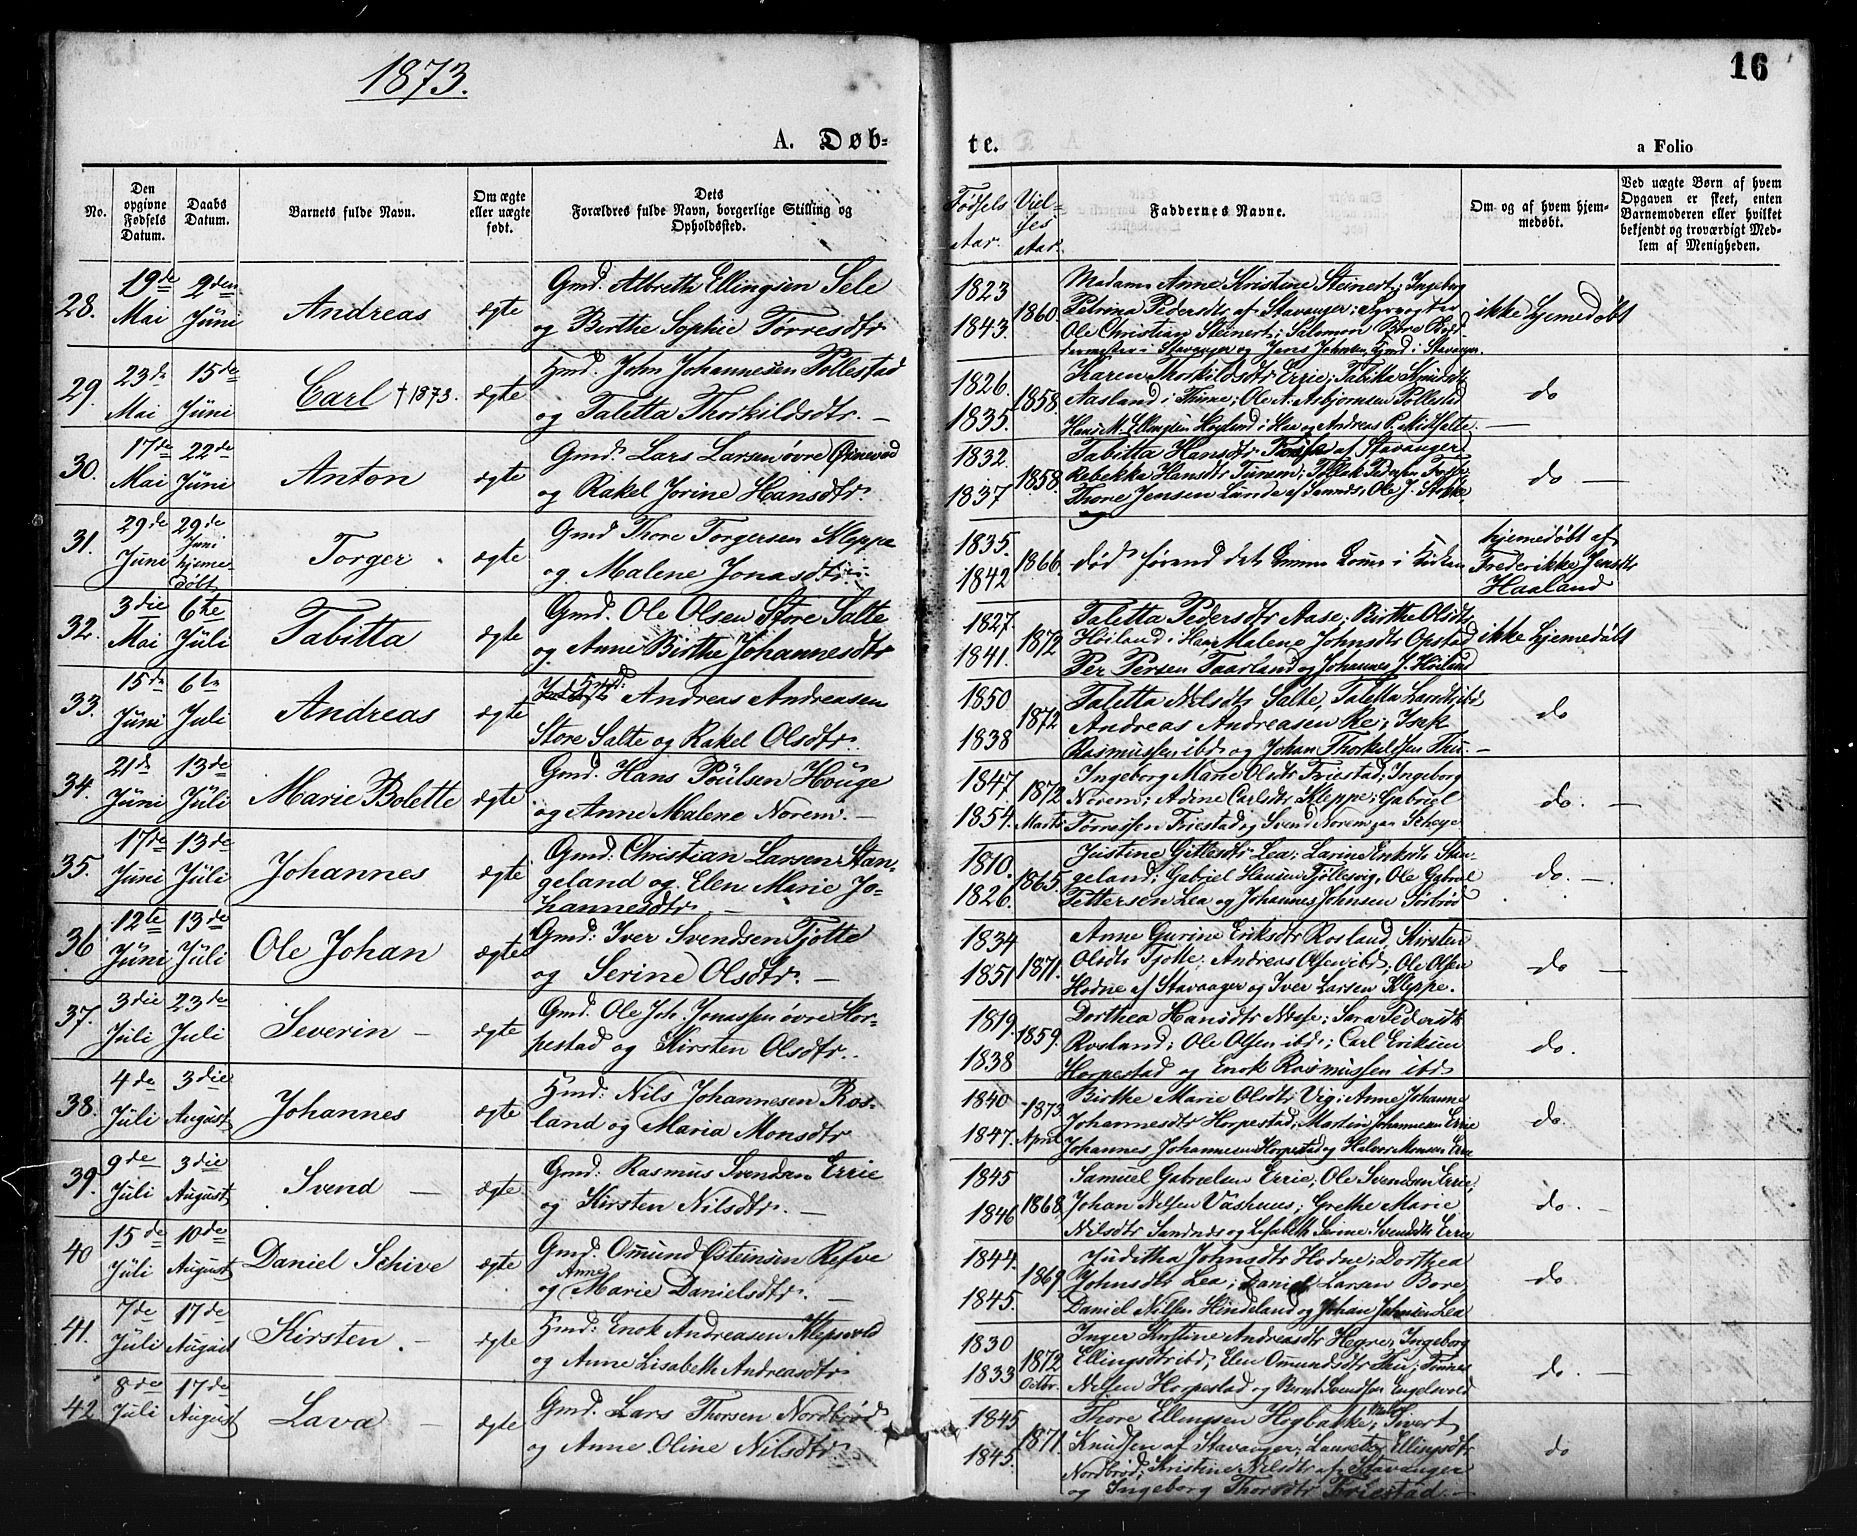 1873.
16
A. Døb-
te.
a Folio
No.
Den opgivne Fødsels Datum.
Daabs Datum.
Barnets fulde Navn.
Om ægte eller uægte født.
Dets Forældres fulde Navn, borgerlige Stilling og Opholdssted.
Fødsels Aar.
Viel- ses Aar.
Faddernes Navne.
Om og af hvem hjem- medøbt.
Ved uægte Børn af hvem Opgaven er skeet, enten Barnemoderen eller hvilket bekjendt og troværdigt Med- lem af Menigheden.
28.
19de Mai
2den Jüni
Andreas
ægte
Gmd. Albretth Ellingsen Sele
og Birthe Sophie Torresdtr
1823
1843
1860
Madam Anne Kristine Steinert; Ingeborg
Petrina Pedersdtr af Stavanger;
Ole Christian Steinert; Salomon
i Stavanger og Jens Johnsen, i Stavanger.
ikke hjemedøbt
29.
23de Mai
15de Jüni
Carl † 1873.
ægte
Hmd. John Johannesen Pollestad
og Taletta Thorkildsdtr. —
1826
1835.
1858.
Karen Thorkildsdtr Errie; Tabitta
Aasland i Thime; Ole A. Asbjornsen Pollestad
Hans M. Ellingsen Hoglund i og Andreas P.
do
30.
17de Mai
22de Jüni
Anton
ægte
Gmd. Lars Larsen øvre Øxnevad
og Rakel Jorine Hansdtr.
1832.
1837
1858.
Tabitta Hansdtr af Stavanger,
Rebekka Hansdtr
Thore Jensen Lunde af Sannds, Ole J. Stokke.
do —
31.
29de Juni
29de Juni hjeme- døbt
Torger.
ægte
Gmd Thore Torgersen Kleppe
og Malene Jonasdtr
1835.
1842
1866.
død førend det i Kirken
hjemedøbt af
Frederikke Jensdtr
Haaland
32.
3die Mai
6te Jüli
Tabitta
ægte
Gmd. Ole Olsen Store Salte
og Anne Birthe Johannesdtr
1827.
1841.
1872
Taletta Pedersdtr Aase; Birthe Olsdtr
Høiland i Haa Malene Johnsdtr Opstad
Per Persen Taarland og Johannes J. Høiland
ikke hjemedøbt
33.
15de Jüni
6te Juli
Andreas
ægte
Andreas Andreasen
Store Salte og Rakel Olsdtr.
1850
1838
1872
Taletta Nilsdtr Salte, Taletta
Andreas Andreasen Re;
Rasmussen ibd. og Johan Thorkildsen Thu —
do
34.
21de Jüni
13de Jüli
Marie Bolette
ægte
Gmd. Hans Poülsen Houge
og Anne Malene Norem. —
1847
1854.
1872 Marts
Ingeborg Marie Olsdtr Friestad; Ingeborg
Norem; Adine Carlsdtr Kleppe; Gabriel
Tørressen Friestad og Svend Norem
do. —
35.
17de Juni
13de Jüli
Johannes
ægte
Gmd: Christian Larsen Stan-
geland og Elen Marie Jo-
hannesdtr —
1810.
1826.
1865.
Justine Gittlesdtr Lea; Larine Eriksdtr Stan-
geland; Gabriel Hansen Fjøllesvig, Ole Gabriel
Pettersen Lea og Johannes Johnsen Sørbrød
do. —
36
12te Jüni
13de Jüli
Ole Johan
ægte
Gmd: Iver Svendsen Tjotte
og Serine Olsdtr. —
1834
1851
1871.
Anne Gurine Eriksdtr Rosland, Kirsten
Olsdtr Tjotte; Andreas Olsen ibd; Ole Olsen
Hodne af Stavanger og Iver Larsen Kleppe.
do —
37.
3die Jüli
23de Juli
Severin —
ægte
Gmd. Ole Joh. Jonassen øvre Hor-
pestad og Kirsten Olsdtr.
1819.
1838
1859.
Dorthea Hansdtr Næse; Sara Pedersdtr
Rosland; Ole Olsen ibd; Carl Eriksen
Horpestad og Enok Rasmussen ibd
do.
38.
4de Jüli
3die August
Johannes
ægte
Hmd: Nils Johannesen Ros-
land og Maria Monsdtr
1840
1847.
1873. April
Birthe Marie Olsdtr Vig; Anne Johanne
Johannesdtr Horpestad, Martin Johannesen Errie
Johannes Johannesen Horpestad og Halvor Monsen Erre
do
39.
9de Jüli
3die August
Svend —
ægte
Gmd: Rasmus Svendsen Errie
og Kirsten Nilsdtr. —
1845
1846
1868
Samuel Gabrielsen Errie, Ole Svendsen Errie;
Johan Nilsen Vashuus; Grethe Marie
Nilsdtr Sandnds og Lisabeth Serine Svendsdtr Erre
do.
40
15de Jüli
10de August
Daniel Schive
ægte
Gmd. Omund Østeinsen Refve
Anne
og Marie Danielsdtr. —
1844.
1845.
1869
Juditha Johnsdtr Hodne; Dorthea
Johnsdtr Lea; Daniel Larsen Bore,
Daniel Nilsen Hindeland og Johan Johnsen Lea
do
41.
7de Jüli
17de August
Kirsten. —
ægte
Hmd: Enok Andreasen Klepsvold
og Anne Lisabeth Andreasdtr
1830
1833
1872 Octbr.
Inger Kristine Andreasdtr Hegre; Ingeborg
Ellingsdtr ibd; Elen Omundsdtr Thu; Tønnes
Nilsen Horpestad og Bernt Svendsen Engelsvold
do
42
8de Juli
17de August
Lava —
ægte
Gmd. Lars Thorsen Nordbrød
og Anne Oline Nilsdtr
1845
1845.
1871
Thore Ellingsen Hogbakke; Sivert
Knudsen af Stavanger; Lauretz Ellingsdtr
Nordbrød; Kristine Nilsdtr af Stavanger
og Ingeborg Thorsdtr Friestad. —
do